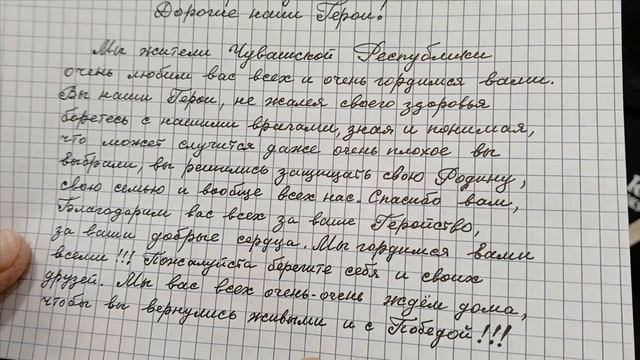 Дорогие наши Герои!
Мы жители Чувашской Республики
очень любим вас всех и очень гордимся вами.
Вы наши Герои, не жалея своего здоровья
боретесь с нашими врагами, зная и понимая,
что может случится даже очень плохое вы
выбрали, вы решились защищать свою Родину,
свою семью и вообще всех нас. Спасибо вам,
Благодарим вас всех за ваше Геройство,
за ваши добрые сердца. Мы гордимся вами
всеми!!! Пожалуйста берегите себя и своих
друзей. Мы вас всех очень-очень ждём дома,
чтобы вы вернулись живыми и с Победой!!!